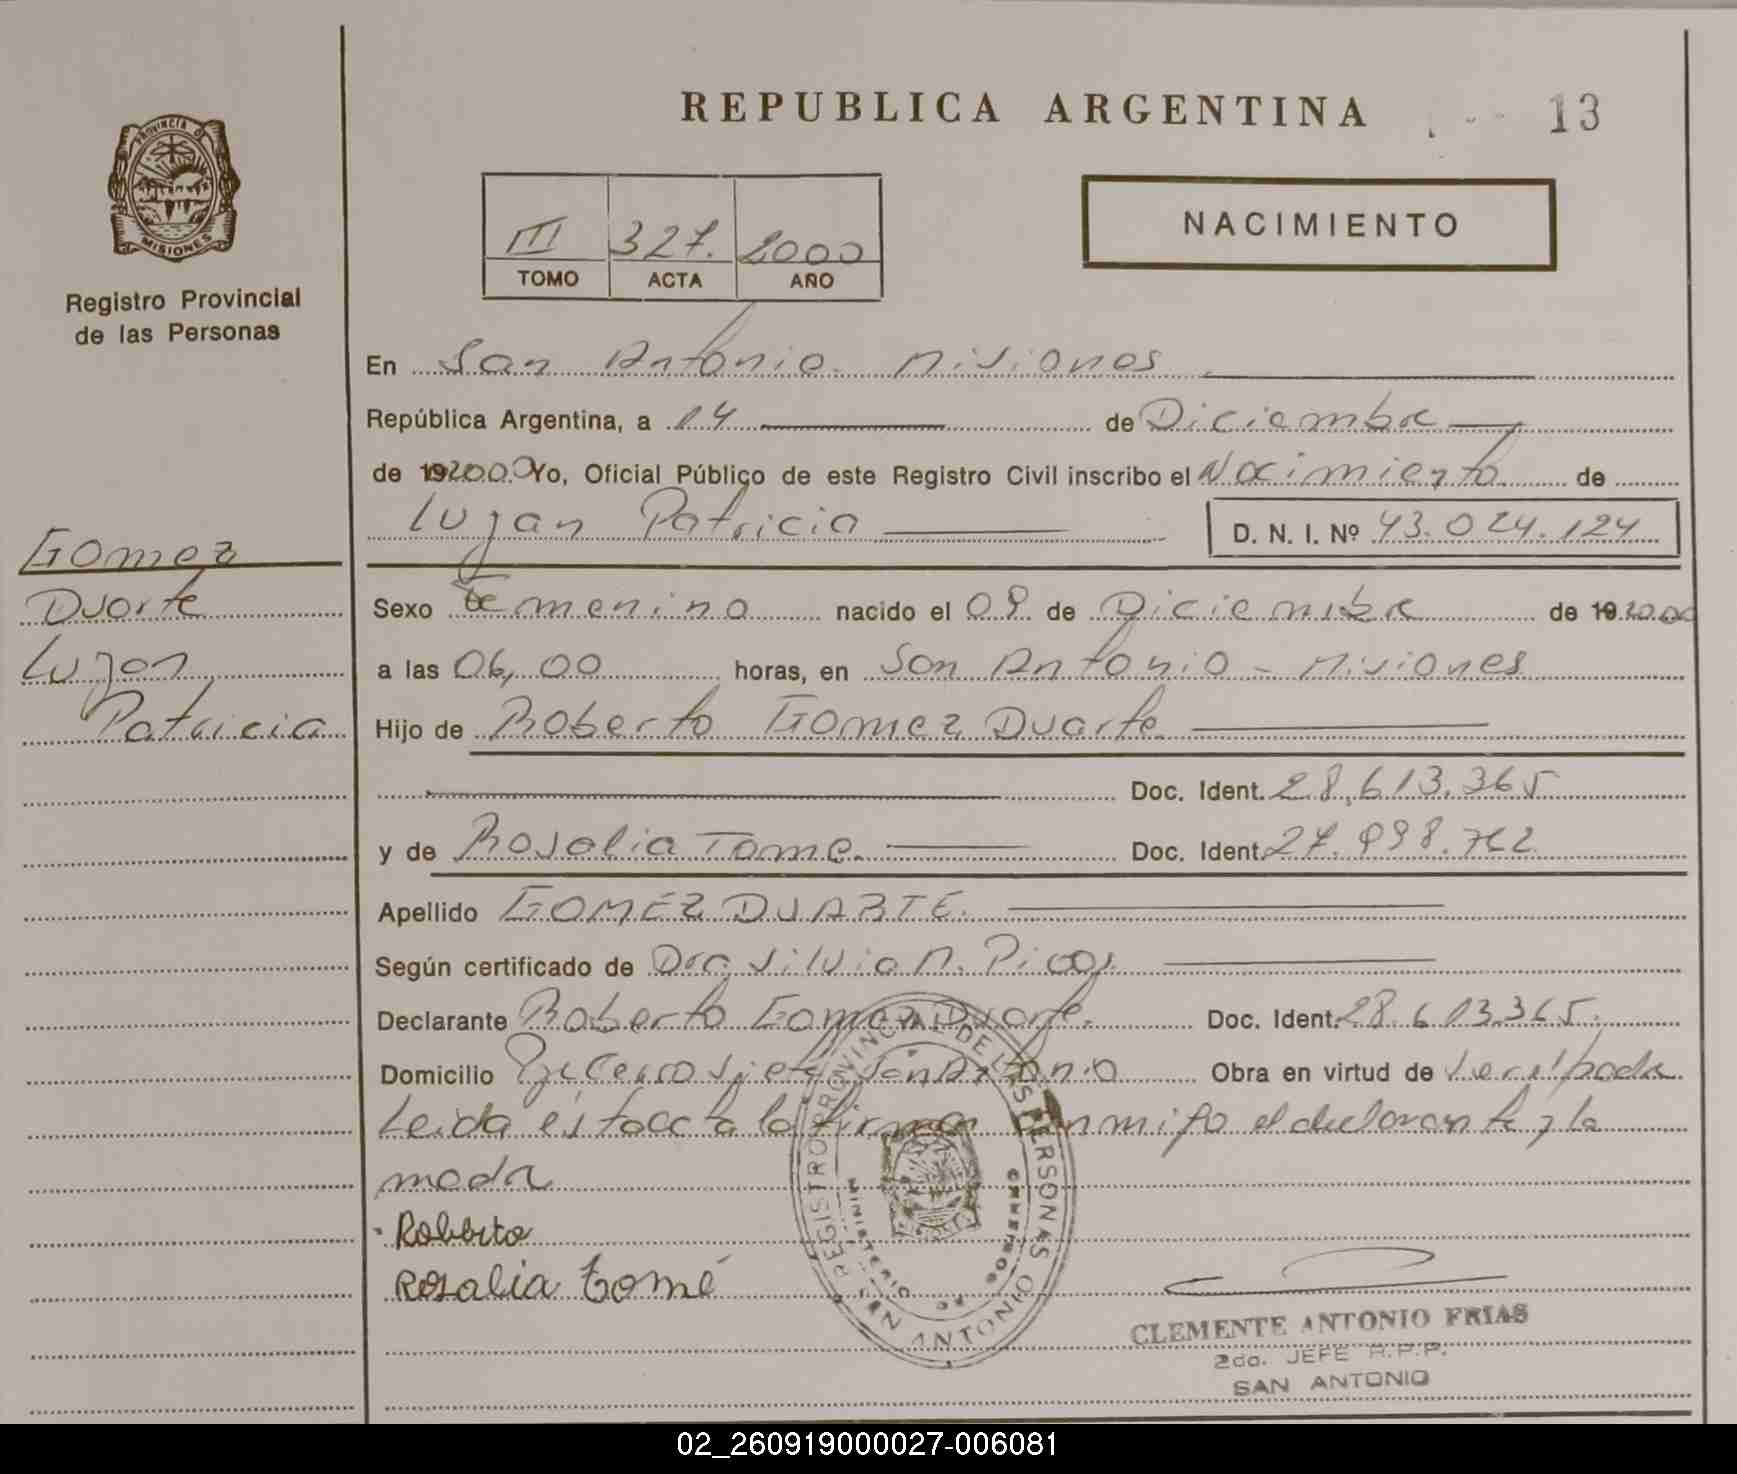 REPUBLICA ARGENTINA 13
PROVINCIA D
MISIONES
Registro Provincial
de las Personas
NACIMIENTO
III 327. 2000
TOMO ACTA AÑO
En San Antonio. Misiones
República Argentina, a 14 de Diciembre
de 192000 Yo, Oficial Público de este Registro Civil inscribo el Nacimiento de
Lujan Patricia D. N. I. Nº 43.024.124
Gomez
Duarte
Lujan
Patricia
Sexo Femenino nacido el 09 de Diciembre de 192000
a las 06,00 horas, en San Antonio - Misiones
Hijo de Roberto Gomez Duarte
Doc. Ident. 28,613.365
y de Rosalia Tome. Doc. Ident. 27.998.762
Apellido GOMEZ DUARTE.
Según certificado de Dra Silvia M. Picos.
Declarante Roberto Gomez Duarte. Doc. Ident. 28.613.365.
Domicilio San Antonio Obra en virtud de
Leida esta acta la firman conmigo el declarante y la
madre
Roberto
Rosalia tomé
REGISTRO PROVINCIAL DE LAS PERSONAS
MINISTERIO DE GOBIERNO
SAN ANTONIO
CLEMENTE ANTONIO FRIAS
2do. JEFE R.P.P.
SAN ANTONIO
02_260919000027-006081